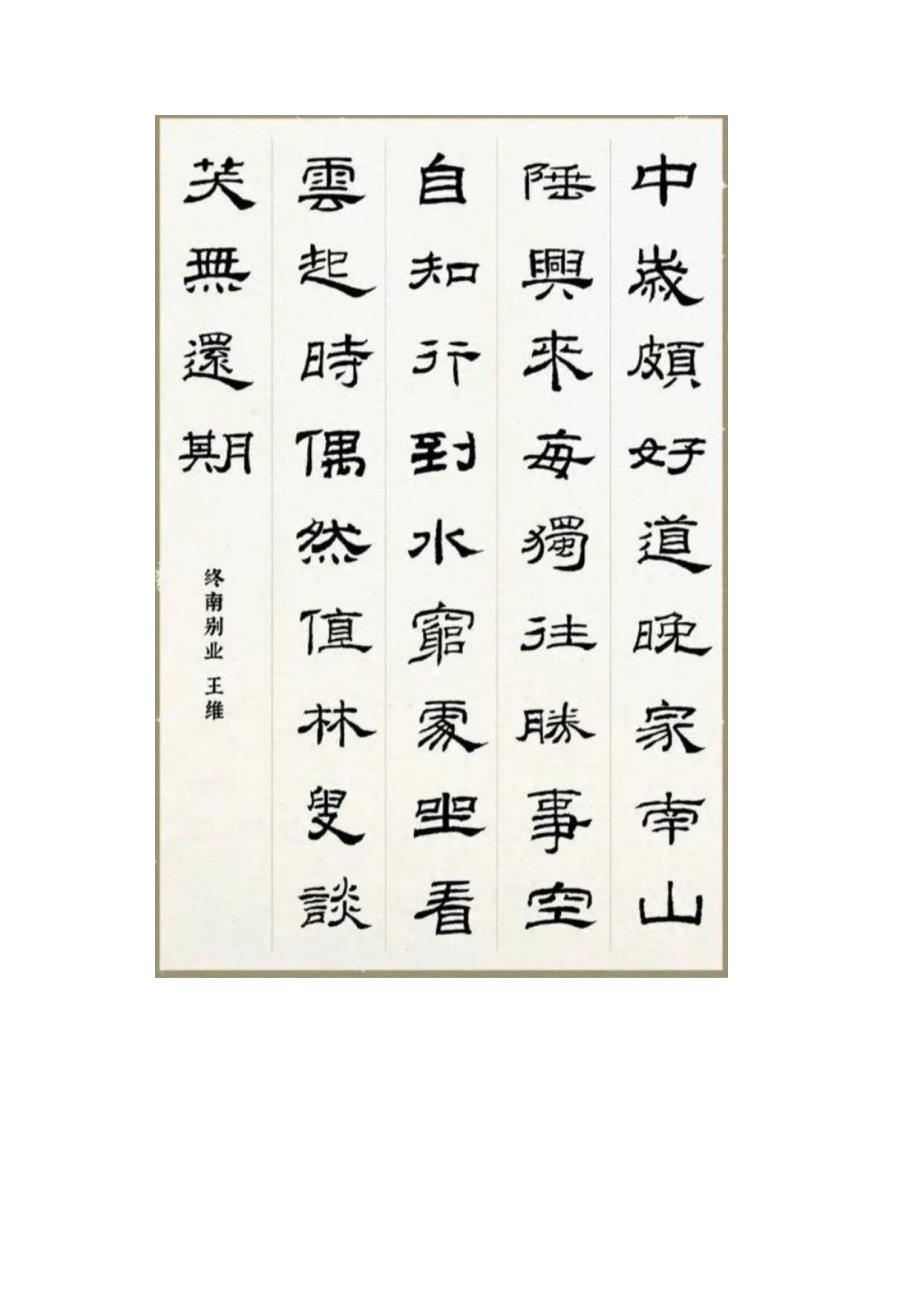 中歲頗好道晚家南山
陲興來每獨往勝事空
自知行到水窮處坐看
雲起時偶然值林叟談
笑無還期
终南别业 王维